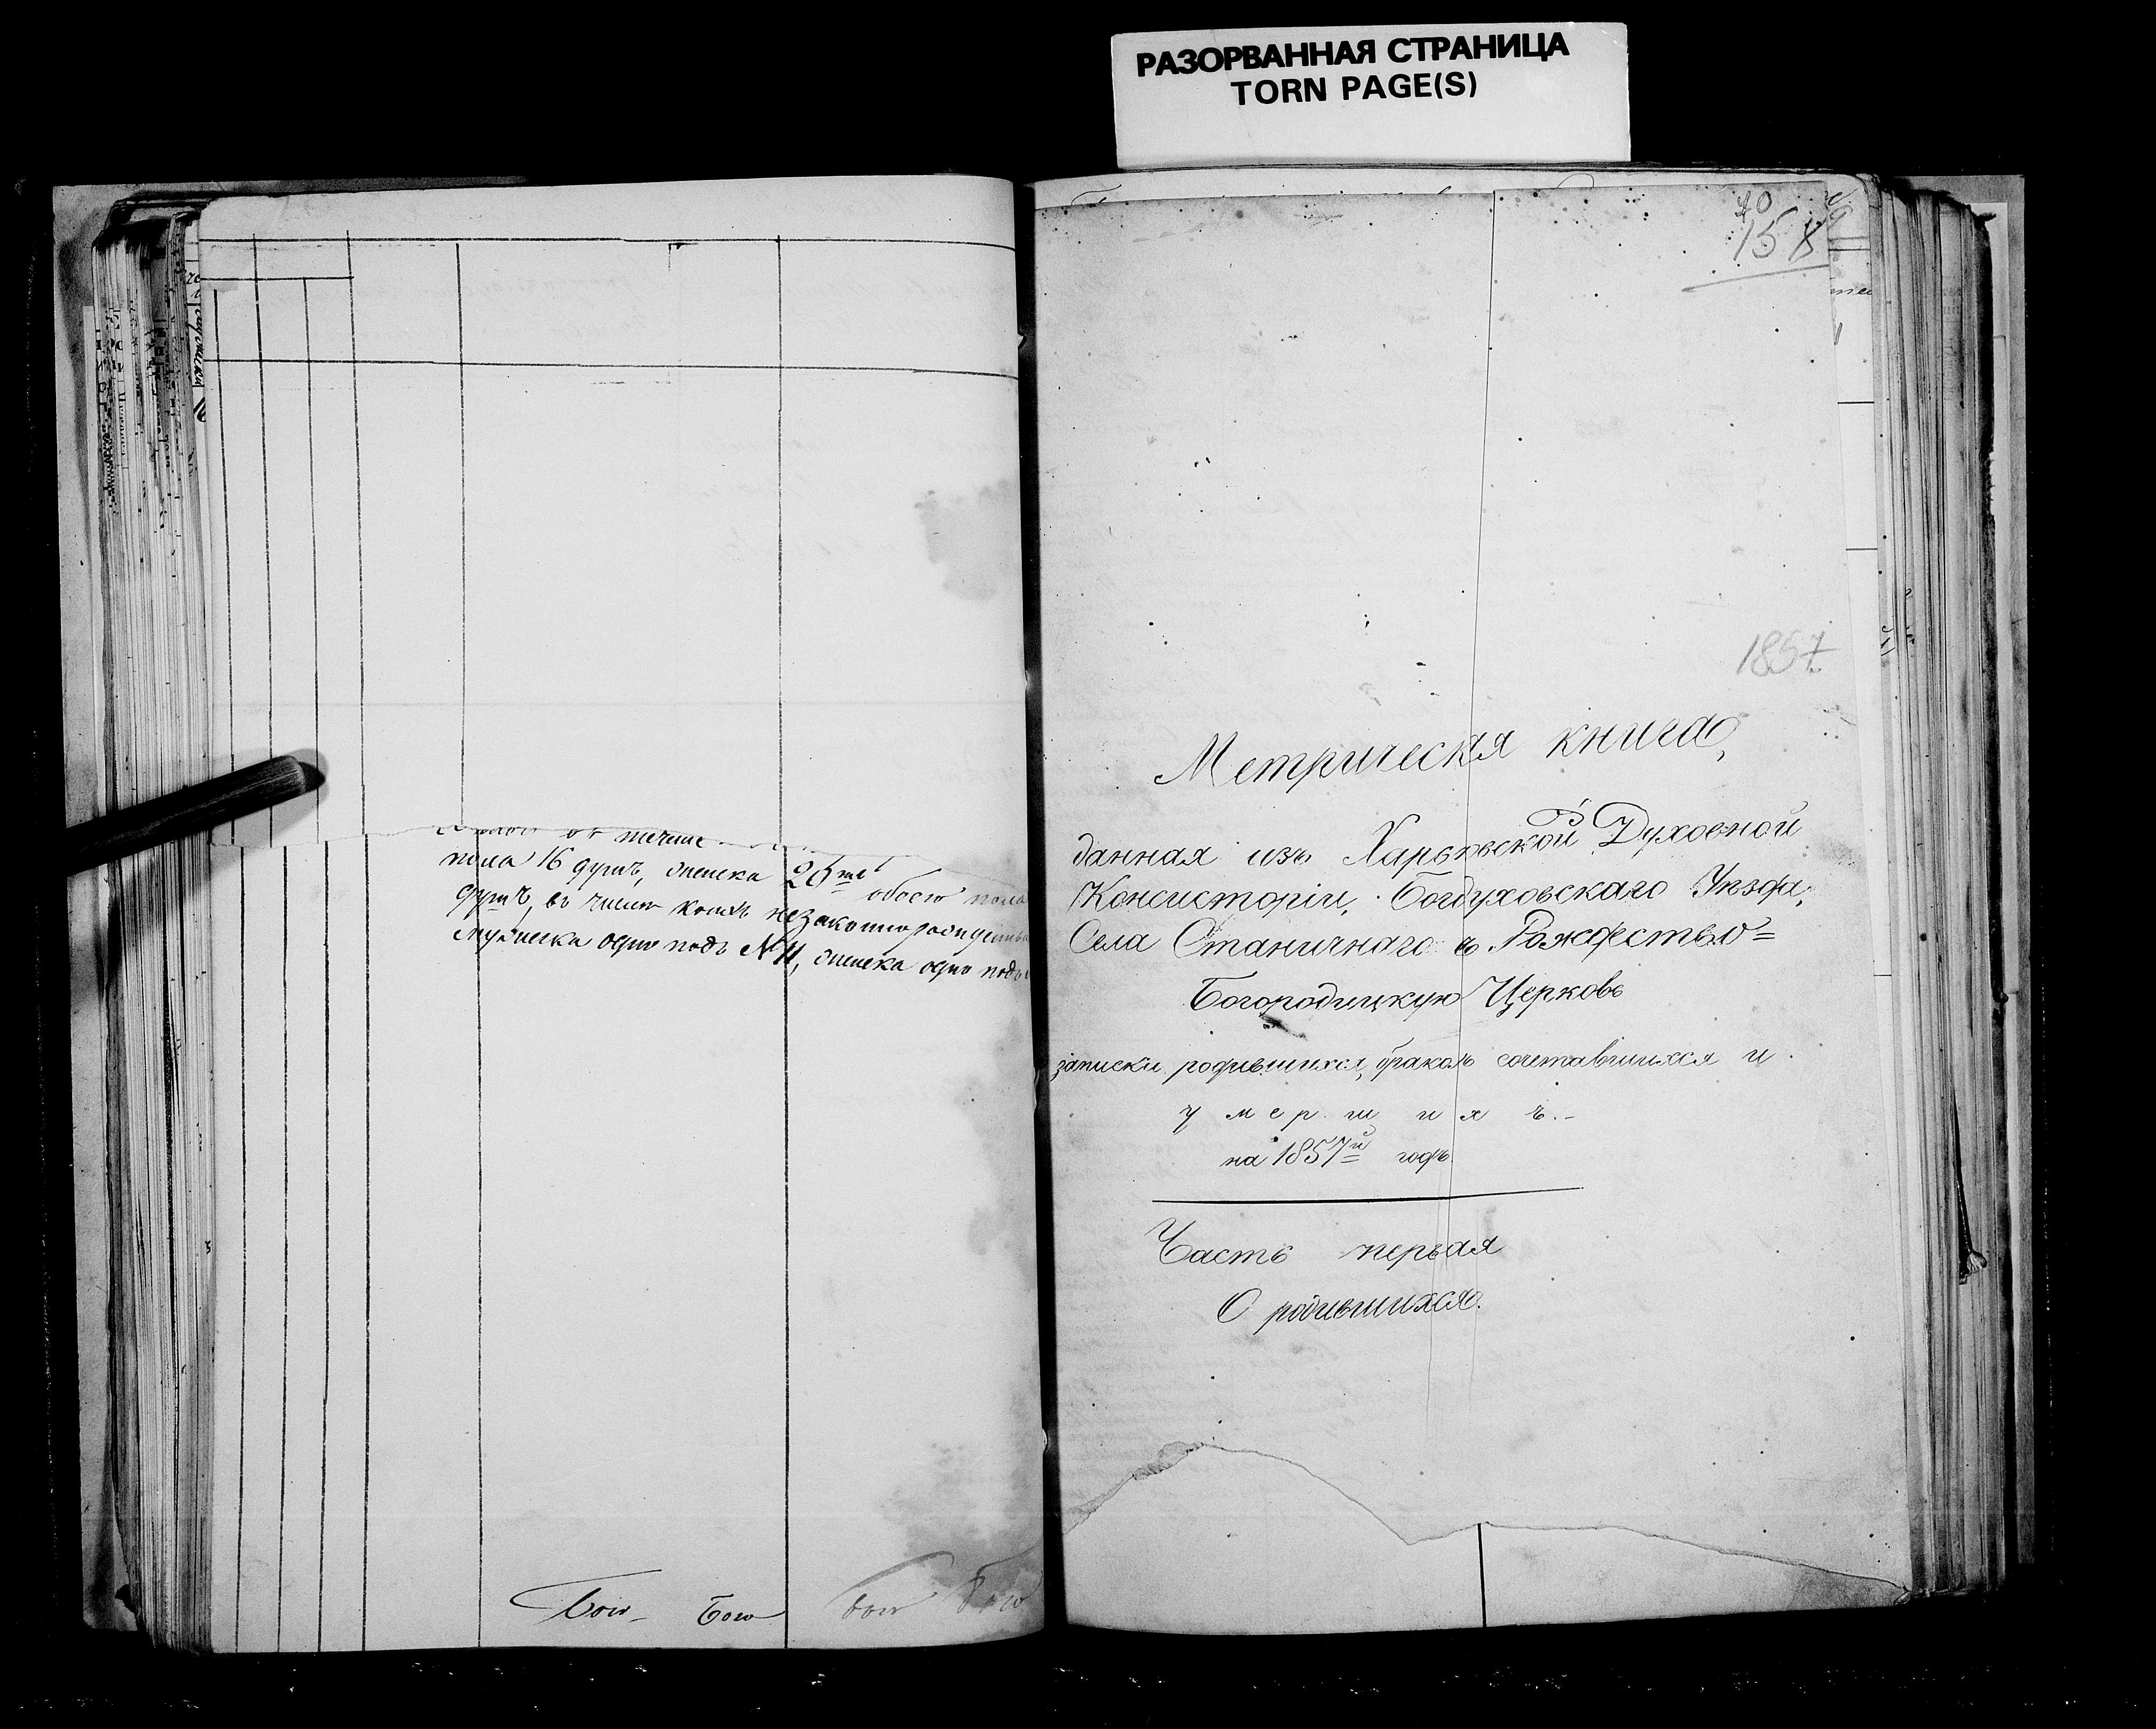 РАЗОРВАННАЯ СТРАНИЦА
TORN PAGE(S)
въ течение
пола 16 душъ, женска 20ть обоего пола
душъ, въ числѣ коихъ незаконнорожденны
мужеска одно подъ № 11, женска одно подъ
Бого Бого Бого Бого
40
158
1857
Метрическая книга,
данная изъ Харьковской Духовной
Консисторіи, Богодуховскаго Уѣзда,
Села Станичнаго въ Рождество=
Богородицкую Церковь
записки родившихся, бракомъ сочетавшихся и
умершихъ.-
на 1857й годъ
Часть первая
О родившихся.